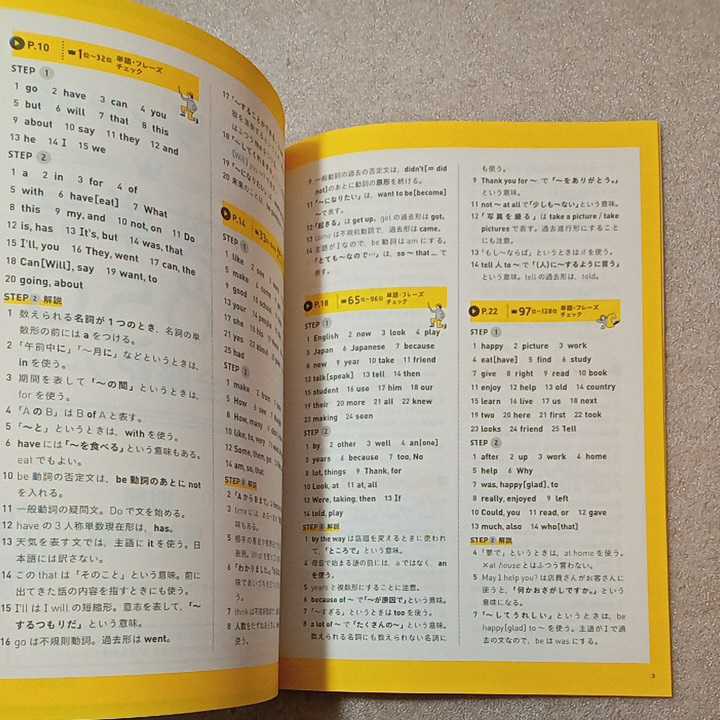 P.10 1位~32位 単語・フレーズ
チェック
STEP 1
1 go 2 have 3 can 4 you
5 but 6 will 7 that 8 this
9 about 10 say 11 they 12 and
13 he 14 I 15 we
STEP 2
1 a 2 in 3 for 4 of
5 with 6 have[eat] 7 What
8 this 9 my, and 10 not, on 11 Do
12 is, has 13 It's, but 14 was, that
15 I'll, you 16 They, went 17 can, the
18 Can[Will], say 19 want, to
20 going, about
STEP 2 解説
1 数えられる名詞が1つのとき、名詞の単
数形の前には a をつける。
2 「午前中に」「~月に」などというときは、
in を使う。
3 期間を表して「~の間」というときは、
for を使う。
4 「AのB」は B of A と表す。
5 「~と」というときは、with を使う。
6 have には「~を食べる」という意味もある。
eat でもよい。
10 be 動詞の否定文は、be 動詞のあとに not
を入れる。
11 一般動詞の疑問文。Do で文を始める。
12 have の3人称単数現在形は、has。
13 天気を表す文では、主語に it を使う。日
本語には訳さない。
14 この that は「そのこと」という意味。前に
出てきた話の内容を指すときにも使う。
15 I'll は I will の短縮形。意志を表して、「~
するつもりだ」という意味。
16 go は不規則動詞。過去形は went。
P.14
STEP 1
1 like 2
5 make
9 good 10
13 your 14 people
17 she 18 his
21 yes 22 about
25 had
STEP 2
1 make 2 from
5 How 6
8 How, many
10 Like, to, very
12 Some, them, go
14 am, so, that
STEP 2 解説
9 一般動詞の過去の否定文は、didn't[= did
not]のあとに動詞の原形を続ける。
11 「~になりたい」は、want to be[become]
~で表す。
12 「起きる」は get up。get の過去形は got。
13 come は不規則動詞で、過去形は came。
14 主語が I なので、be 動詞は am にする。
「とても~なので…」は、so ~ that ... で
表す。
P.18 65位~96位 単語・フレーズ
チェック
STEP 1
1 English 2 now 3 look 4 play
5 Japan 6 Japanese 7 because
8 new 9 year 10 take 11 friend
12 talk[speak] 13 tell 14 then
15 student 16 use 17 him 18 our
19 their 20 more 21 all 22 knew
23 making 24 seen
STEP 2
1 by 2 other 3 well 4 an[one]
5 years 6 because 7 too, No
8 lot, things 9 Thank, for
10 Look, at 11 at, all
12 Were, taking, then 13 If
14 told, play
STEP 2 解説
1 by the way は話題を変えるときに使われ
て、「ところで」という意味。
4 母音で始まる語の前には、a ではなく、an
を使う。
5 years と複数形にすることに注意。
6 because of ~で「~が原因で」という意味。
7 「~すぎる」というときは too を使う。
8 a lot of ~で「たくさんの~」という意味。
数えられる名詞にも数えられない名詞に
も使う。
9 Thank you for ~で「~をありがとう。」
という意味。
11 not ~ at all で「少しも~ない」という意味。
12 「写真を撮る」は take a picture / take
pictures で表す。過去進行形にすること
にも注意。
13 「もし~ならば」というときは if を使う。
14 tell 人 to ~で「(人)に~するように言う」
という意味。tell の過去形は、told。
P.22 97位~128位 単語・フレーズ
チェック
STEP 1
1 happy 2 picture 3 work
4 eat[have] 5 find 6 study
7 give 8 right 9 read 10 book
11 enjoy 12 help 13 old 14 country
15 learn 16 live 17 us 18 next
19 two 20 here 21 first 22 took
23 looks 24 friend 25 Tell
STEP 2
1 after 2 up 3 work 4 home
5 help 6 Why
7 was, happy[glad], to
8 really, enjoyed 9 left
10 Could, you 11 read, or 12 gave
13 much, also 14 who[that]
STEP 2 解説
4 「家で」というときは、at home を使う。
×at house とはふつう言わない。
5 May I help you? は店員さんがお客さんに
使うと、「何かおさがしですか。」という
意味になる。
7 「~してうれしい」というときは、be
happy[glad] to ~を使う。主語が I で過
去の文なので、be は was にする。
3